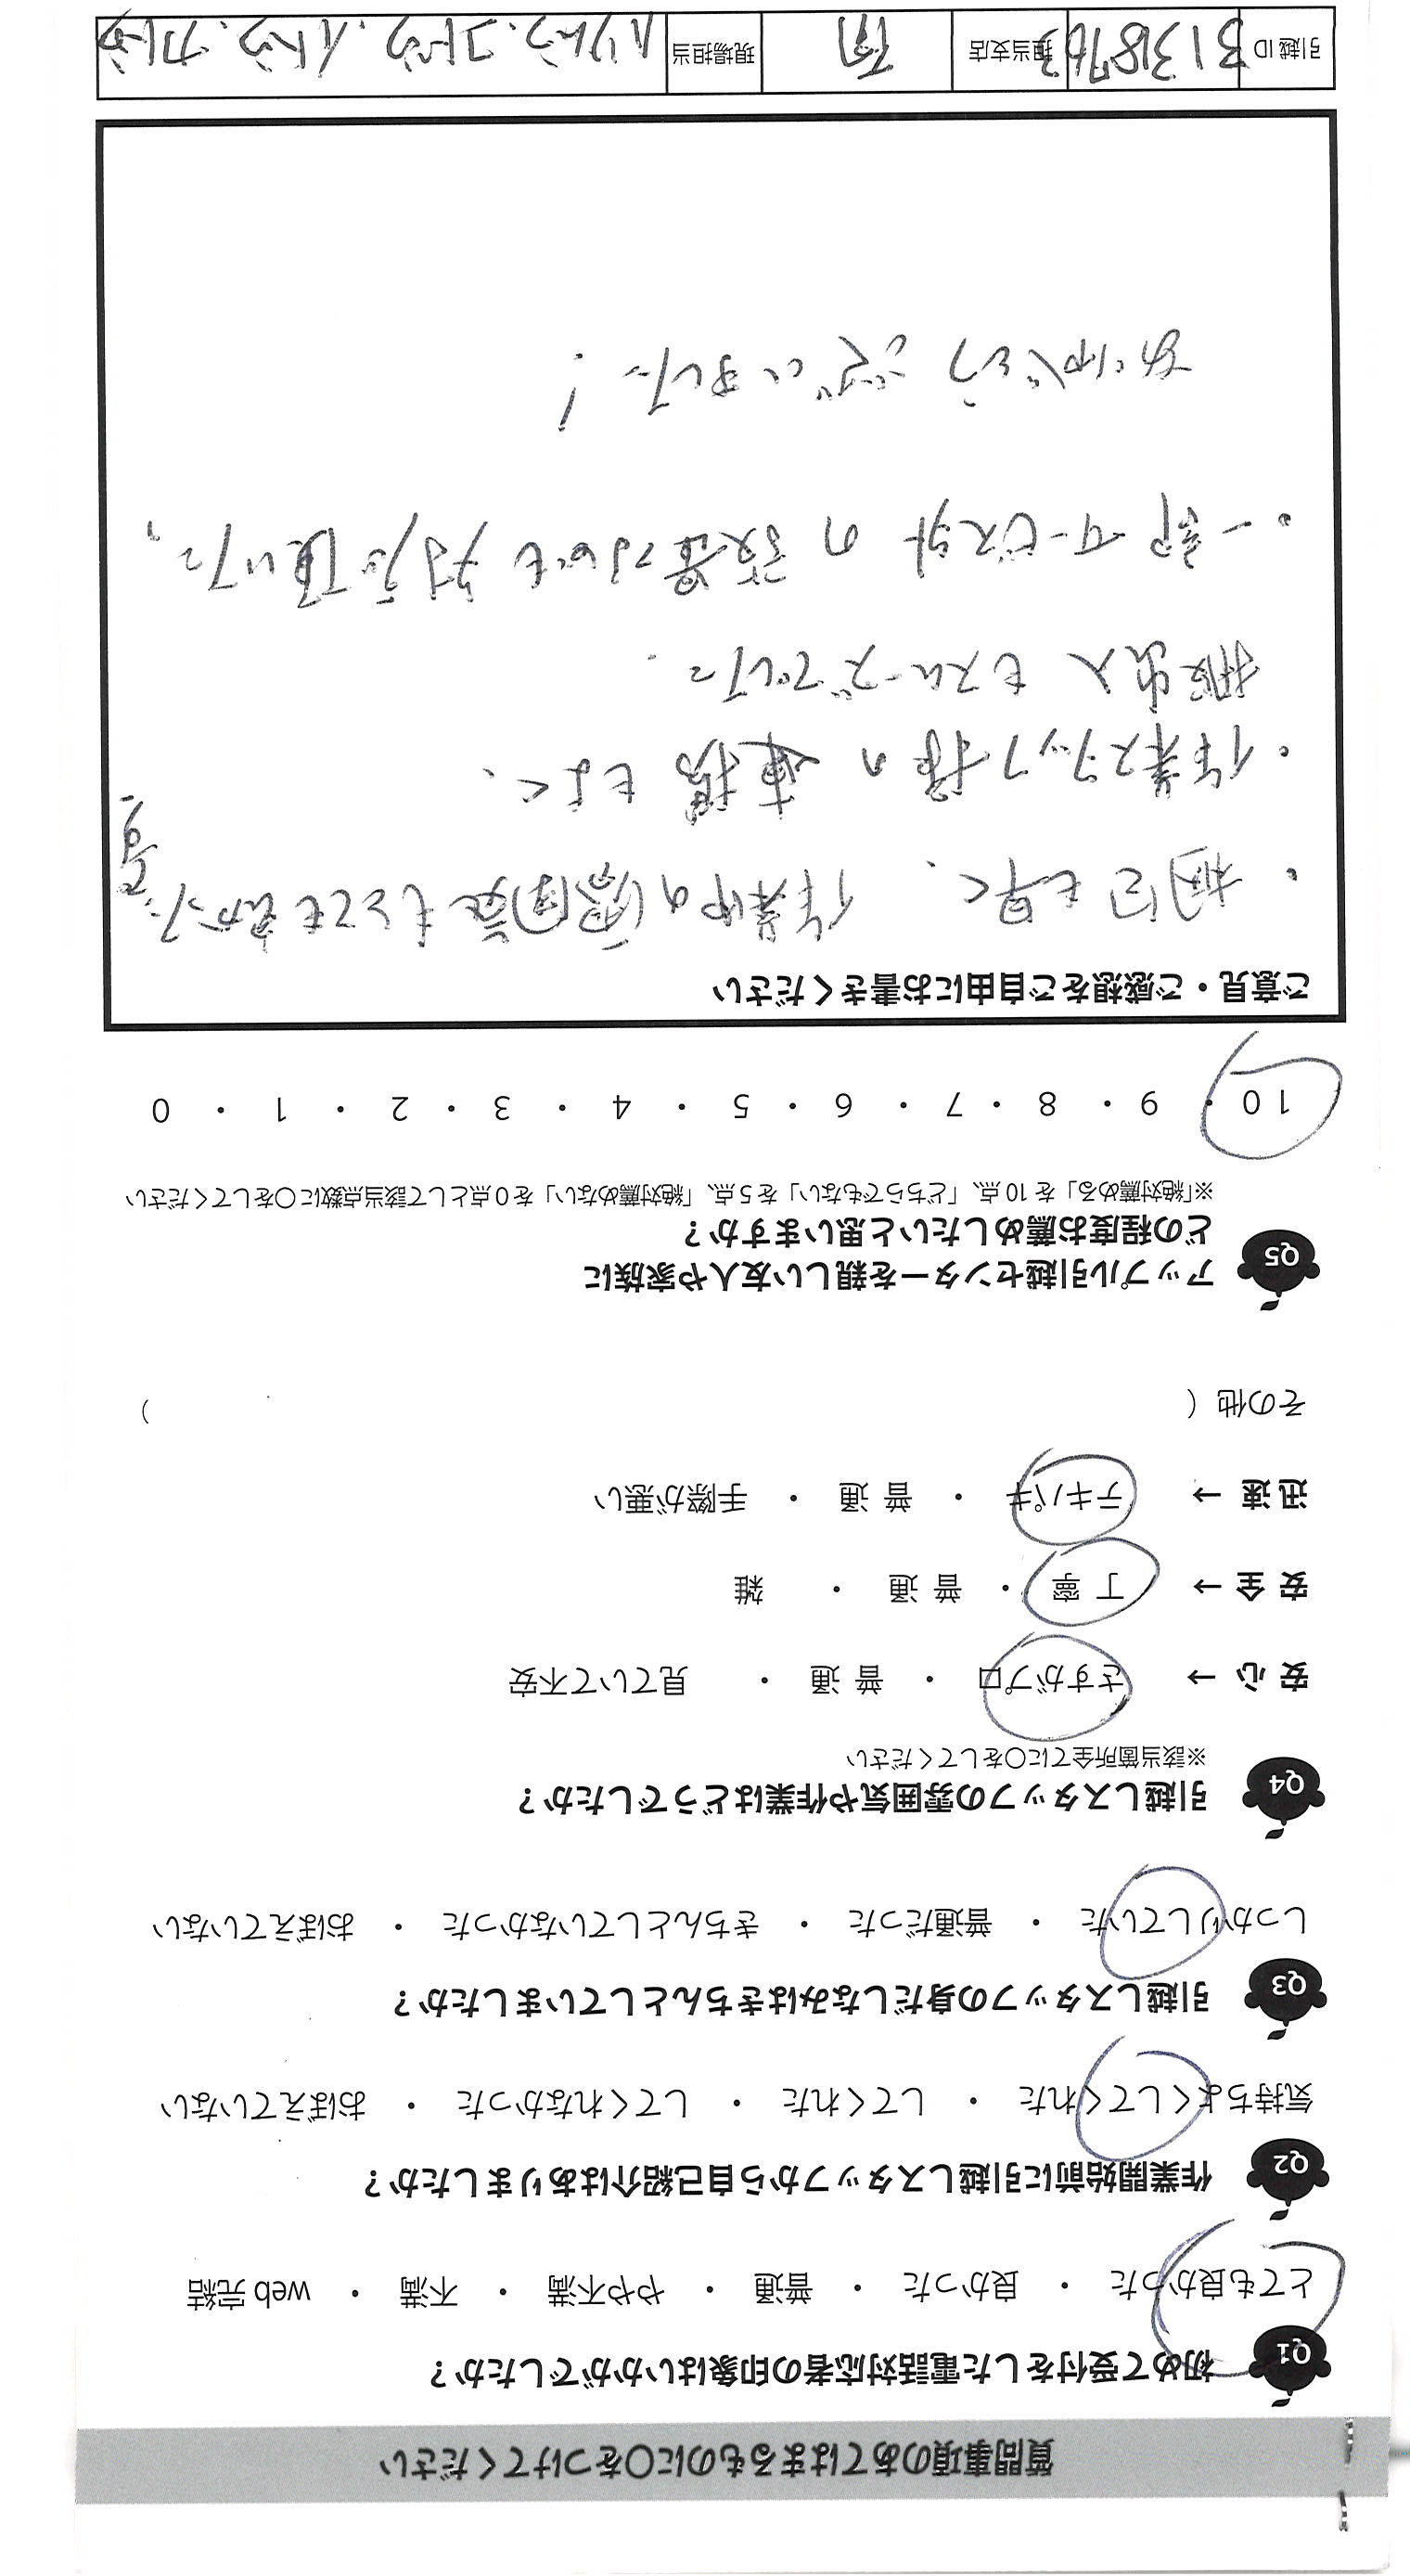 質問事項のあてはまるものに○をつけてください
Q1 初めて受付をした電話対応者の印象はいかがでしたか?
とても良かった ・ 良かった ・ 普通 ・ やや不満 ・ 不満 ・ web完結
Q2 作業開始前に引越しスタッフから自己紹介はありましたか?
気持ちよくしてくれた ・ してくれた ・ してくれなかった ・ おぼえていない
Q3 引越しスタッフの身だしなみはきちんとしていましたか?
しっかりしていた ・ 普通だった ・ きちんとしていなかった ・ おぼえていない
Q4 引越しスタッフの雰囲気や作業はどうでしたか?
※該当箇所全てに○をしてください
安心 → さすがプロ ・ 普通 ・ 見ていて不安
安全 → 丁寧 ・ 普通 ・ 雑
迅速 → テキパキ ・ 普通 ・ 手際が悪い
その他 ( )
Q5 アップル引越センターを親しい友人や家族に
どの程度お薦めしたいと思いますか?
※「絶対薦める」を10点、「どちらでもない」を5点、「絶対薦めない」を0点として該当点数に○をしてください
10 ・ 9 ・ 8 ・ 7 ・ 6 ・ 5 ・ 4 ・ 3 ・ 2 ・ 1 ・ 0
ご意見・ご感想をご自由にお書きください
・梱包も早く、作業中の雰囲気もとてもよかったです。
・作業スタッフ様の連携もよく、
搬出入もスムーズでした。
・一部サービス外の設置も対応頂いた。
ありがとうございました!
引越ID 3138763 担当支店 現場担当 ハットリ、コドウ、イトウ、カトウ